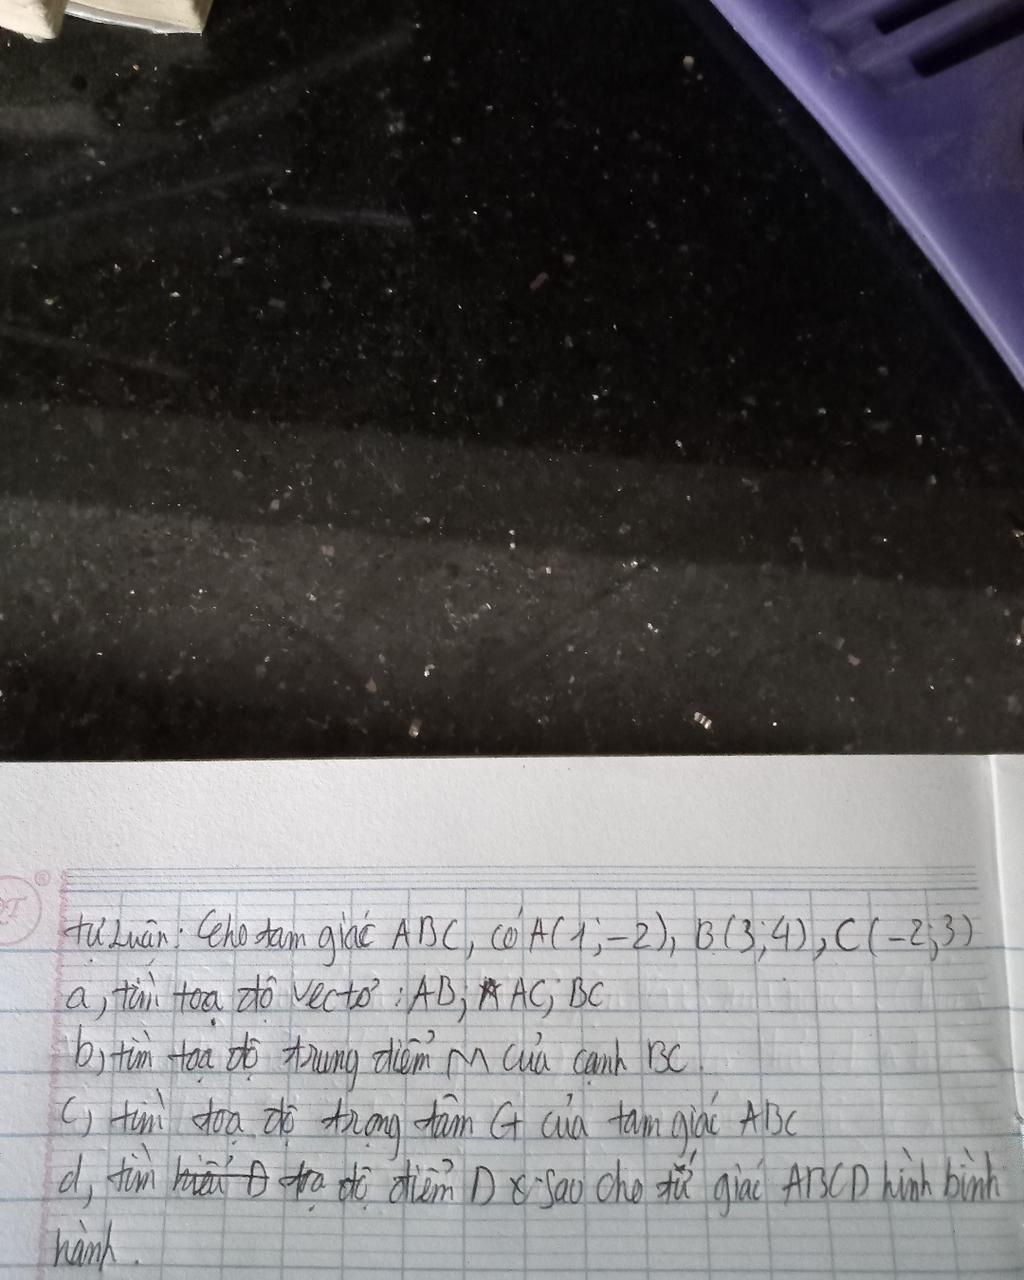 tự Luận: Cho tam giác ABC, có A(1;-2), B(3;4), C(-2;3)
a, tìm toạ độ vectơ : AB; AC; BC
b, tìm toạ độ trung điểm M của cạnh BC.
c, tìm toạ độ trọng tâm G của tam giác ABC
d, tìm toạ độ điểm D sao cho tứ giác ABCD hình bình
hành.